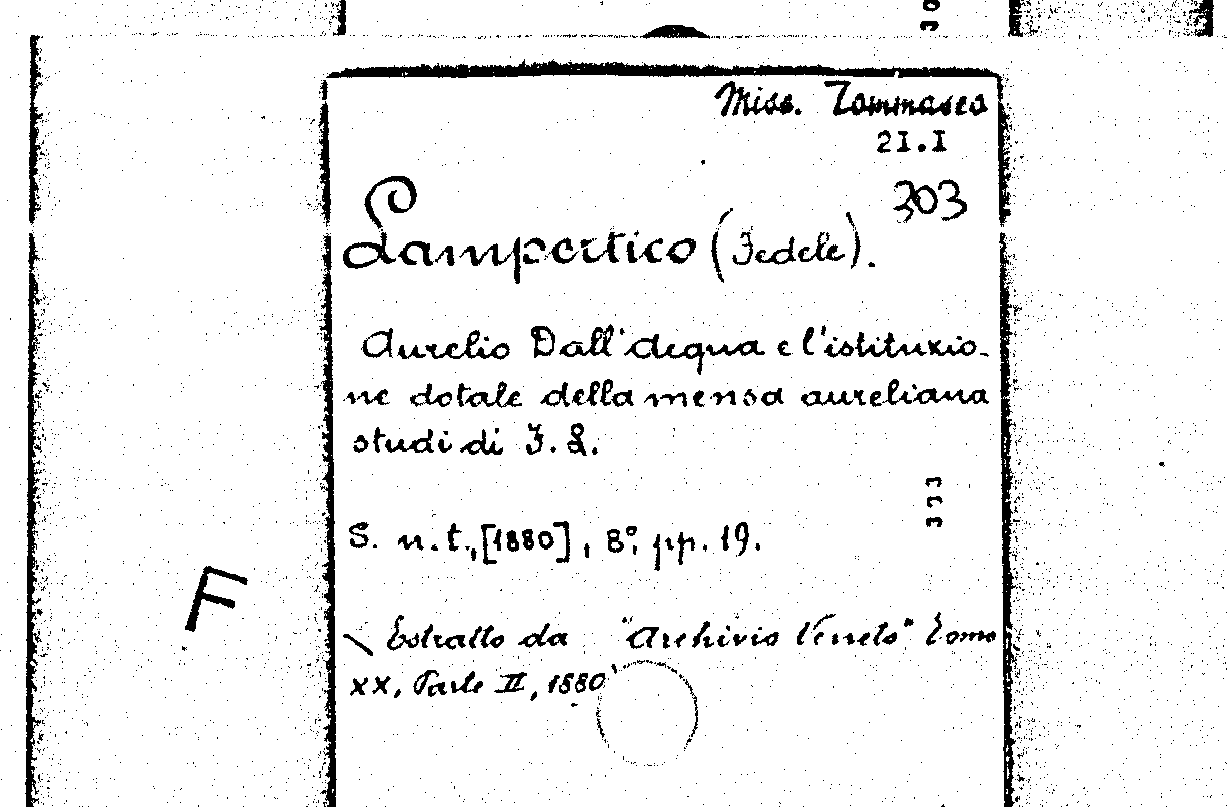 Misc. Tommaseo
21.I
303
Lampertico (Fedele).
Aurelio Dall'Acqua e l'istituzio-
ne dotale della mensa aureliana
studi di F. L.
333
S. n. t., [1880], 8°, pp. 19.
F
Estratto da "Archivio Veneto" Tomo
XX, Parte II, 1880